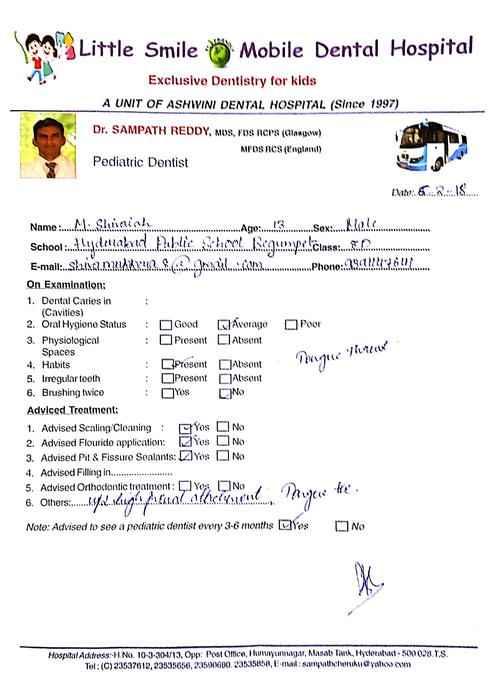 Little Smile Mobile Dental Hospital
Exclusive Dentistry for kids
A UNIT OF ASHWINI DENTAL HOSPITAL (Since 1997)
Dr. SAMPATH REDDY, MDS, FDS RCPS (Glasgow)
MFDS RCS (England)
Pediatric Dentist
Date: 6-2-18
Name: M. Shivaiah Age: 13 Sex: Male
School: Hyderabad Public School Begumpet Class: 8D
E-mail: @gmail.com Phone:
On Examination:
1. Dental Caries in :
(Cavities)
2. Oral Hygiene Status : Good Average Poor
3. Physiological : Present Absent
Spaces
4. Habits : Present Absent
Tongue Thrust
5. Irregular teeth : Present Absent
6. Brushing twice : Yes No
Adviced Treatment:
1. Advised Scaling/Cleaning : Yes No
2. Advised Flouride application: Yes No
3. Advised Pit & Fissure Sealants: Yes No
4. Advised Filling in
5. Advised Orthodontic treatment : Yes No
6. Others: high frenal attachment, Tongue tie.
Note: Advised to see a pediatric dentist every 3-6 months Yes No
Hospital Address: H.No. 10-3-304/13, Opp: Post Office, Humayunnagar, Masab Tank, Hyderabad - 500 028.T.S.
Tel : (C) 23537612, 23535656, 23590680, 23535858, E-mail : sampathcheruku@yahoo.com